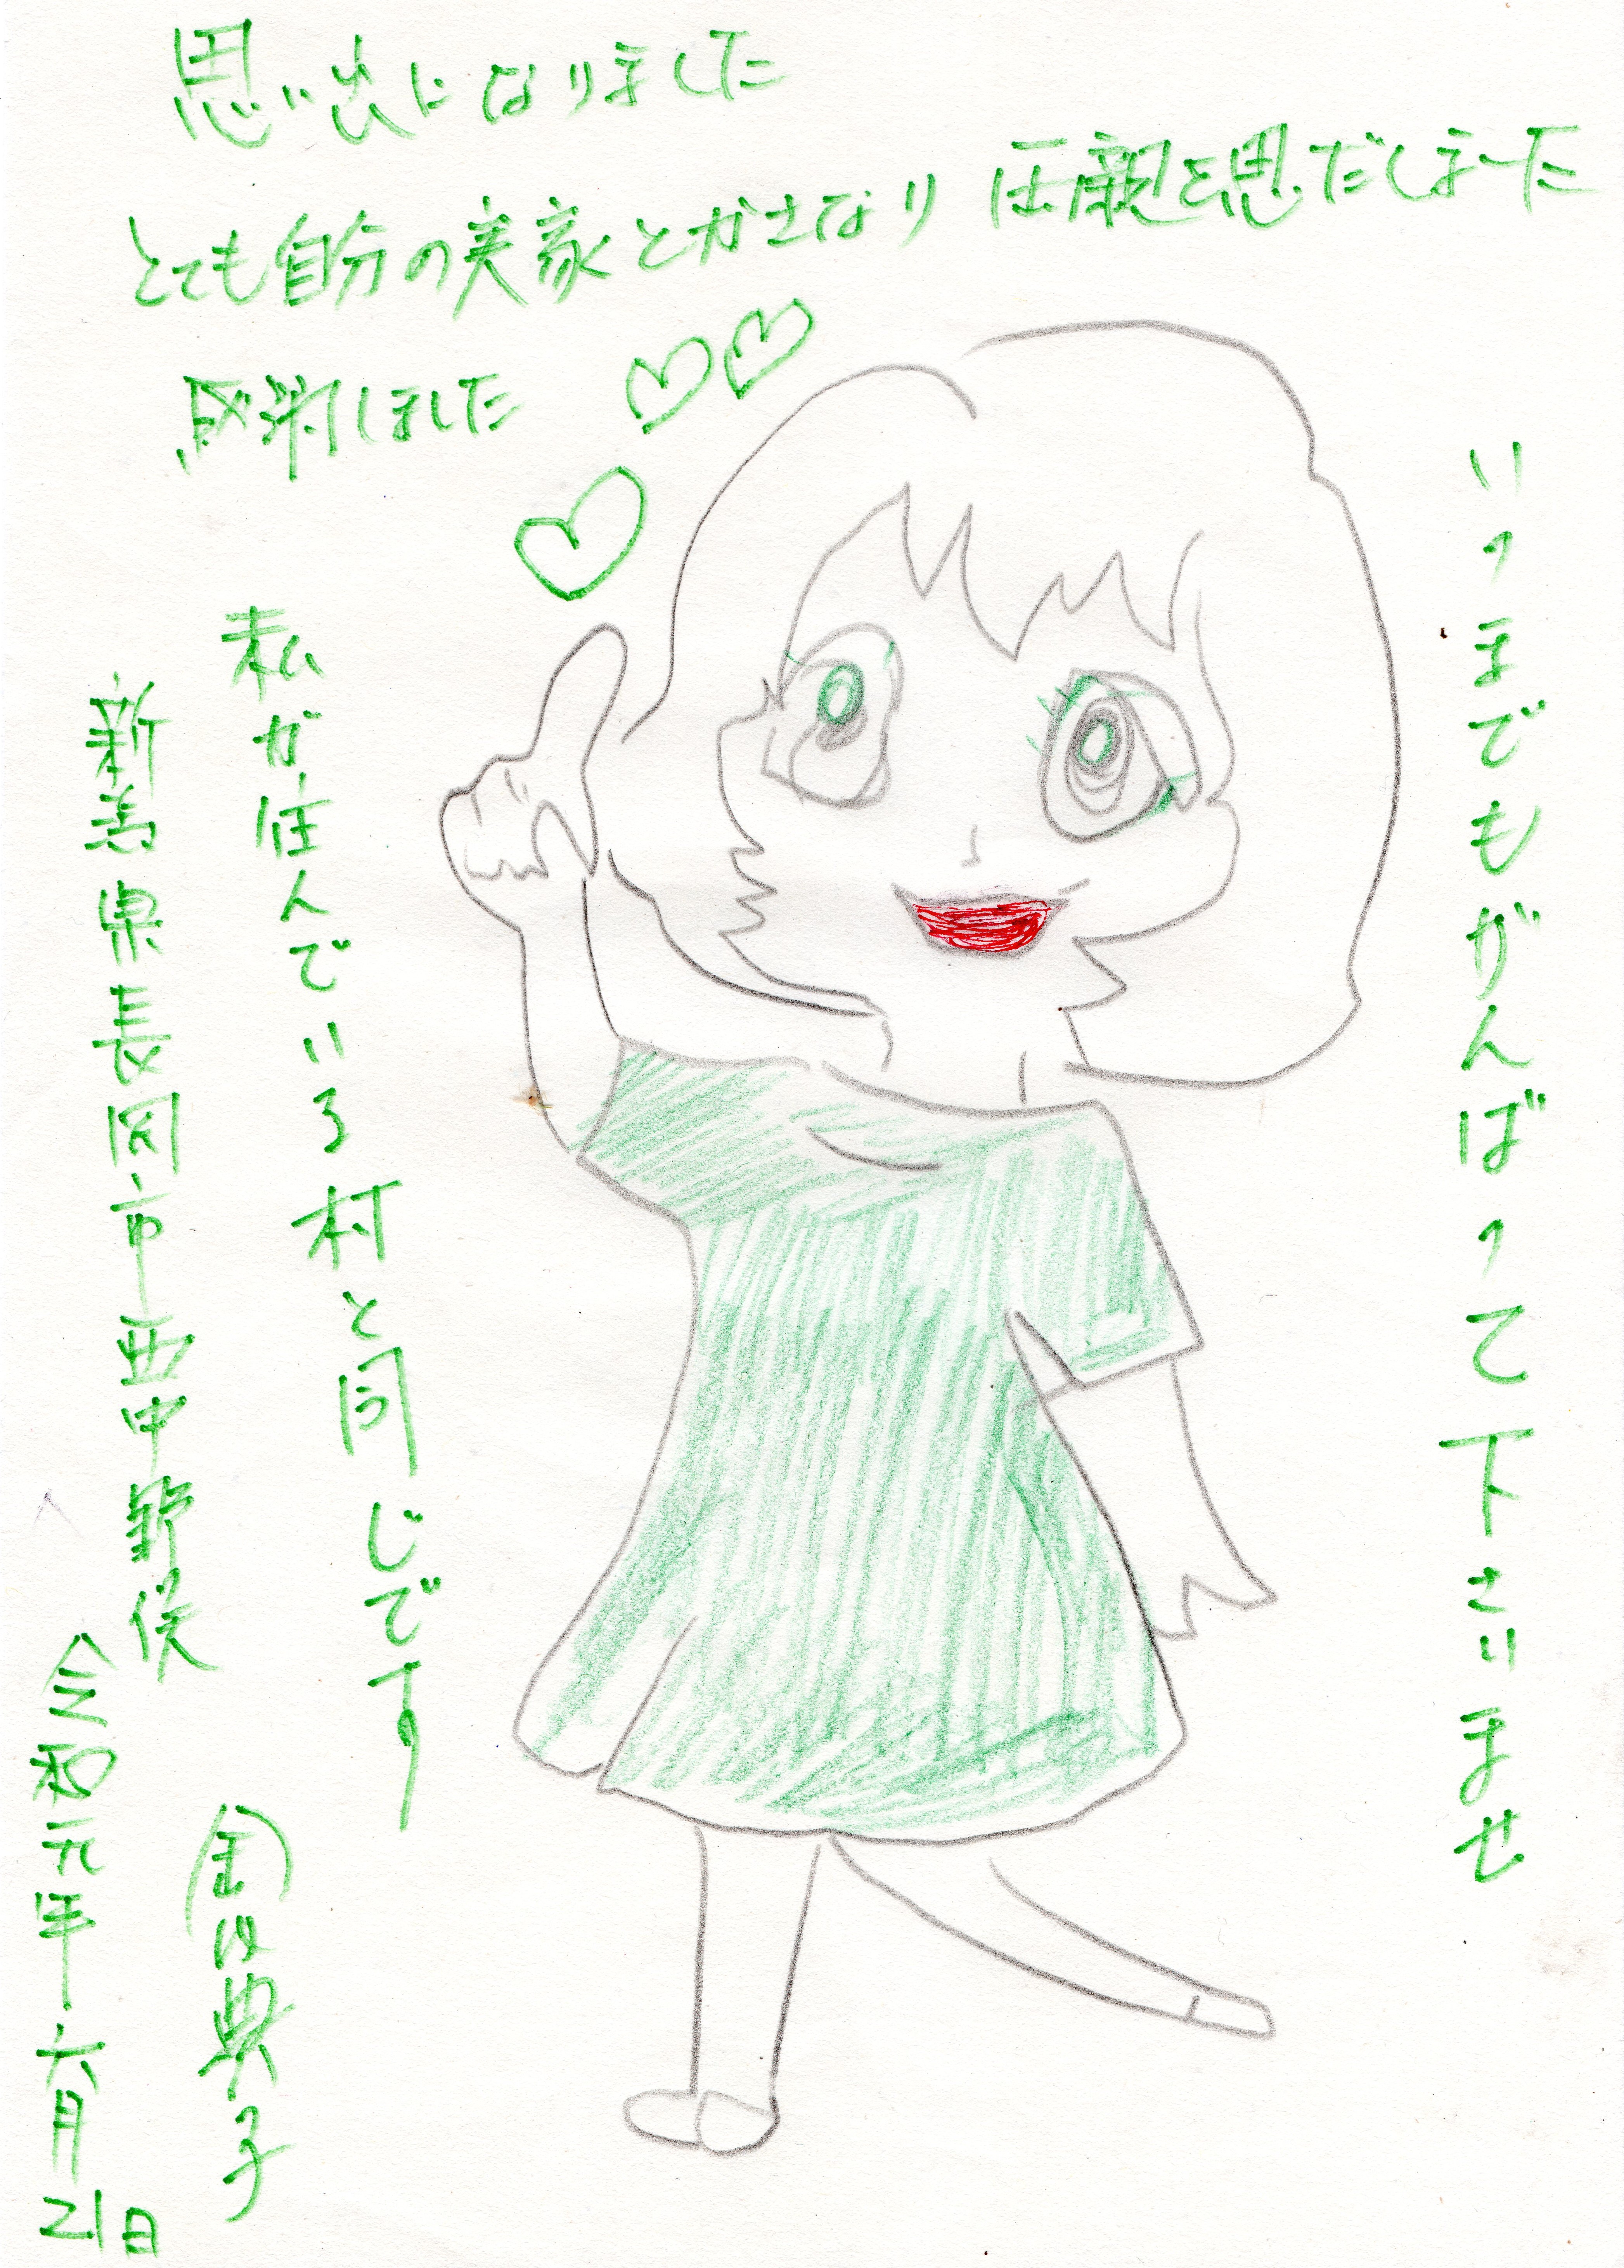 思い出になりました
とても自分の実家とかさなり 母親を思だしました
感謝しました
いつまでもがんばって下さいませ
私が住んでいる村と同じです
新潟県長岡市西中野俣
金内典子
令和元年六月21日